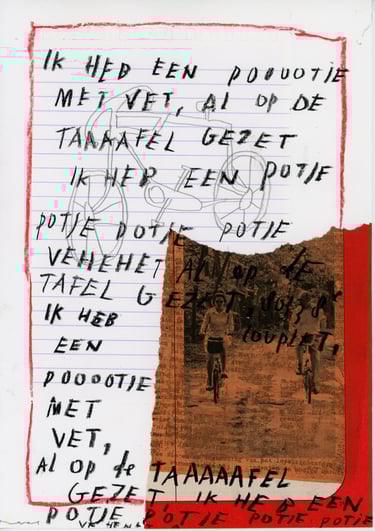 IK HEB EEN POOOOTJE
MET VET, Al OP DE
TAAAAFEL GEZET
IK HEB EEN POTJE
POTJE POTJE POTJE
VEHEHET Al OP dE
TAFEL GEZET,
couplet,
IK HEB
EEN
POOOOTJE
MET
VET,
Al OP de TAAAAAFEL
GEZET, IK HEB EEN
POTJE POTJE POTJE POTJE POTJE